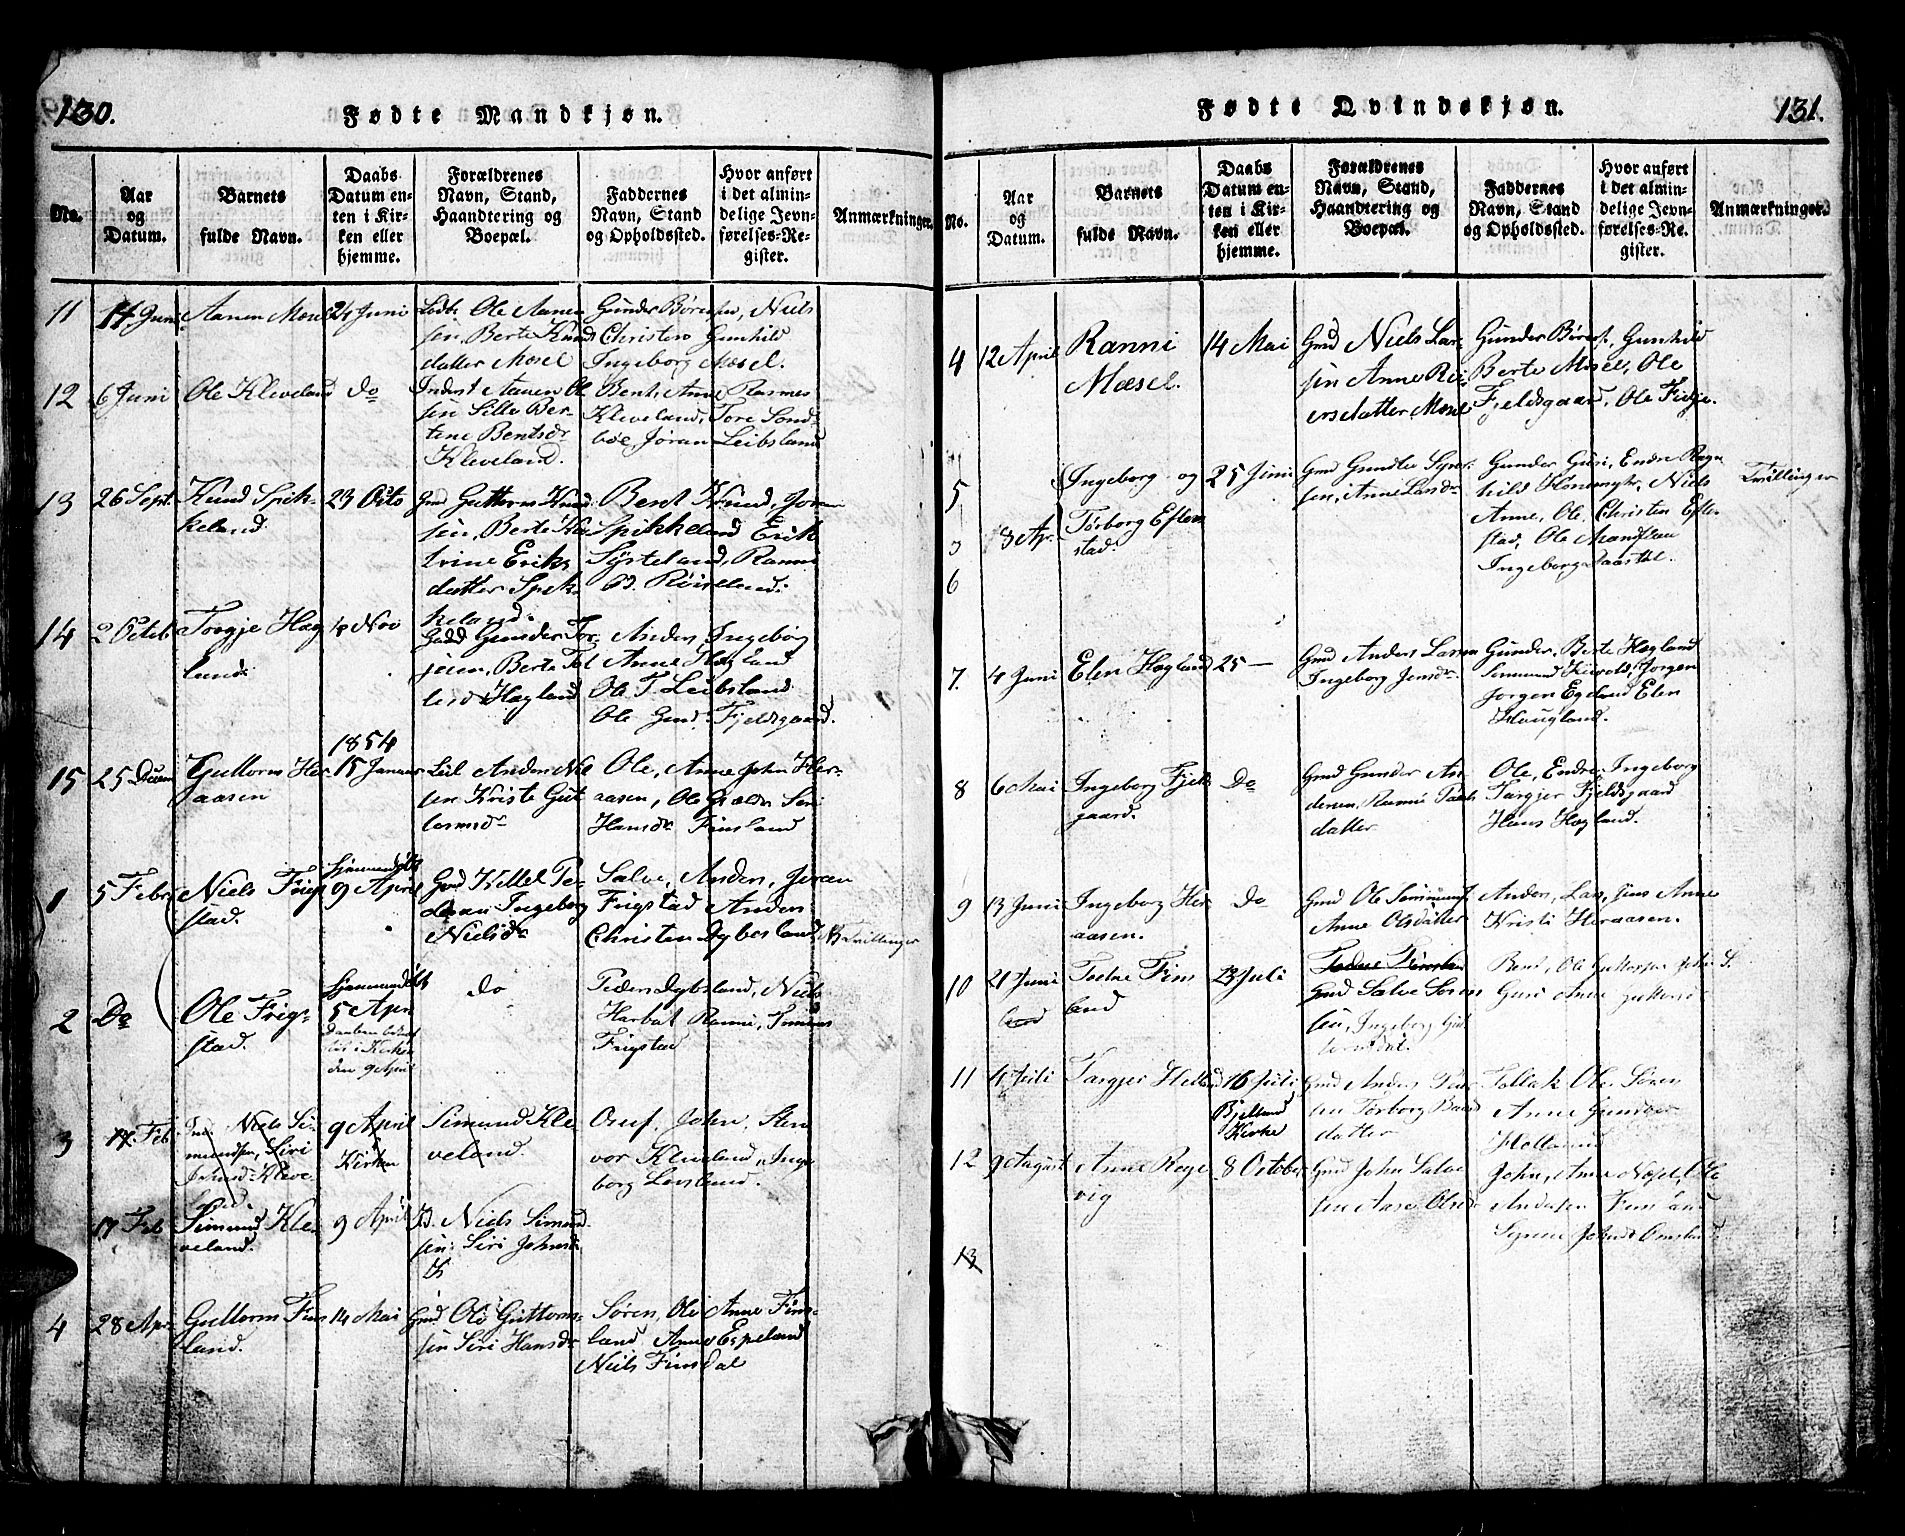 130.
Fødte Mandkjøn.
No.
Aar
og
Datum.
Barnets
fulde Navn.
Daabs
Datum en-
ten i Kir-
ken eller
hjemme.
Forældrenes
Navn, Stand,
Haandtering og
Boepæl.
Faddernes
Navn, Stand
og Opholdssted.
Hvor anført
i det almin-
delige Jevn-
førelses-Re-
gister.
Anmærkninger.
11
14 Juni
Aanen Mosel
24 Juni
Ole Aanen
sen Berte Knud
datter Mosel
Gunder Børufsen, Niels
Christen Gunhild
Ingeborg Mosel.
12
6 Juni
Ole Kleveland
do
Inderst Aanen Ol
sen Sille Ber-
tine Bentsdr
Kleveland.
Bent, Anne Rasmus
Kleveland, Tore Sond-
bøe, Jøran Leibsland
13
26 Sept.
Knud Spik-
keland.
23 Octo
Gmd Guttorm Knud
sen, Berte Ka
trine Eriks
datter Spik-
keland.
Bent Knud, Joran
Spikkeland Erik
Systeland, Ranni
Røiseland.
14
2 Octob
Torgje Høg
land.
18 Nov
Gmd Gunder Tor-
jesen, Berte Tol
lesd Høgland
Anders Ingeborg
Anne Høgland
Ole T. Leibsland
Ole Gund. Fjeldsgaard.
1854
15
25 Decem
Guttorm Her-
aasen
15 Januar
Leil Anders Nie
sen Kriste Gut
tormsdr
Ole, Anne John Her-
aasen, Ole Siri
Hansdr Finsland
1
5 Febr
Niels Frig
stad.
hjemmedøbt
9 April
Gmd Kittel Pe-
Ingeborg
Nielsdr
Salve, Anders, Jøran
Frigstad Anders
Christen Dybesland
NB Tvillinger
2
Do
Ole Frig-
stad.
hjemmedøbt
5 Apri
Daaben
i Kirken
den 9 April
do
Peder Dybsland, Niels
Harbak Ranni, Tomines
Frigstad
3
14 Feb
Niels Si-
mundsen, Siri
Johnsd Kleve
land.
9 April
Kirken
Simund Kle
veland.
Osuf, John, Sten
vor Kleveland, Inge
borg Leisland.
17 Feb
Simund Kle-
veland.
9 April
Niels Simund-
sen Siri Johnsd
K
4
28 Apr
Guttorm Fins
land.
14 Mai
Gmd Ole Guttorm-
sen Siri Hansdr
Søren, Ole Anne Fins-
land, Anne Espeland
Niels Finsdal
131.
Fødte Qvindekjøn.
No.
Aar
og
Datum.
Barnets
fulde Navn.
Daabs
Datum en-
ten i Kir-
ken eller
hjemme.
Forældrenes
Navn, Stand,
Haandtering og
Boepæl.
Faddernes
Navn, Stand
og Opholdssted.
Hvor anført
i det almin-
delige Jevn-
førelses-Re-
gister.
Anmærkninger.
4
12 April
Ranni
Mæsel.
14 Mai
Gmd Niels Lar-
sen Anne Rei-
ersdatter Mosel
Gunder Børufs, Gunhild
Berte Mosel, Ole
Fjeldsgaard, Ole Fidje.
5
6
18 Apr.
Ingeborg og
Torborg Eften
stad.
25 Juni
Gmd Gundle Syver-
sen, Anne Larsdr
Gunder Guri, Endre Ragn
hild Honnmyhr, Niels
Anne, Ole, Christen Eften
stad, Ole
Ingeborg
Tvillinger
7.
4 Juni
Elen Høgland
25 —
Gmd Anders Larsen
Ingeborg Jensdr
Gunder, Berte Høgland
Simund Jørgen
Jørgen Egeland Elen
Haugland.
8
6 Mai
Ingeborg Fjelds
gaard.
Do
Gmd Gunder An
dersen, Ranni
datter
Ole, Endre, Ingeborg
Targjer Fjeldsgaard
Hans Høgland.
9
13 Juni
Ingeborg Her
aasen.
Do
Gmd Ole Simunds
Anne Olsdatter
Anders, Lars, Jens Anne
Kristi Heraasen.
10
21 Juni
land
Todne Fins
land
23 Juli
Todne Finslan
Gmd Salve Søren
sen, Ingeborg Gut
tormsdr.
Bent, Ole Guttormsen
Guri Anne Guttorm
11
4 Juli
Targjer Hellan
16 Juli
Bjelland
Kirke
Gmd Anders
sen Torborg
datter
Tollak Ole Søren
Anne Gunder
Helland
12
9 August
Anne Røge
vig
8 October
Gmd John Salve
sen Aase Olsd
John, Anne Ole
Andersen
Syrene Johnsd
13